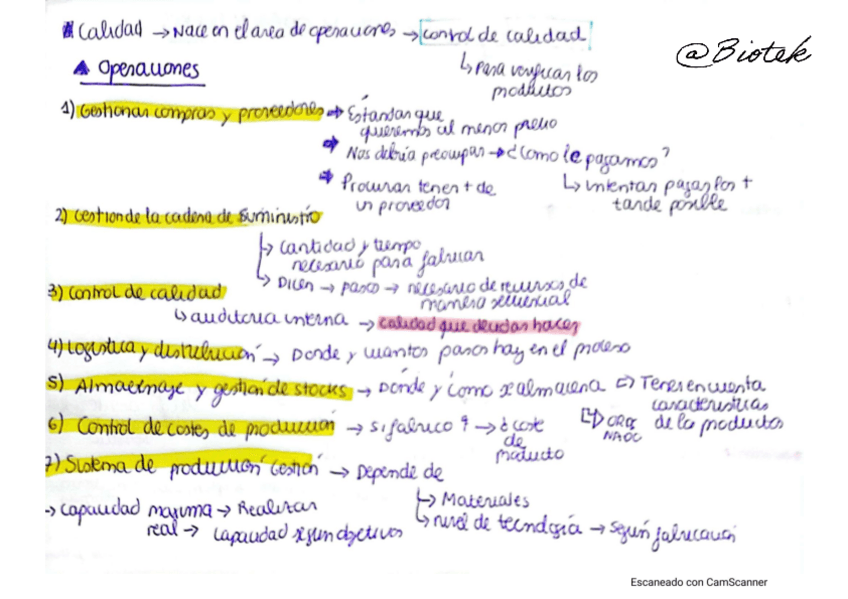 * Calidad → Nace en el area de operaciones → control de calidad
@Biotek
↳ para verificar los
productos
▲ Operaciones
1) Gestionar compras y proveedores → Estándar que
queremos al menor precio
→ Nos debría preocupar → ¿Como le pagamos?
↳ intentar pagar los +
tarde posible
→ Procurar tener + de
un proveedor
2) Gestion de la cadena de suministro
↳ cantidad y tiempo
necesario para fabricar
↳ Dicen → pasos → necesario de recursos de
manera secuencial
3) Control de calidad
↳ auditoria interna → calidad que decidas hacer
4) Logistica y distribución → Donde y cuantos pasos hay en el proceso
5) Almacenaje y gestión de stocks → Dónde y cómo se almacena ⇨ Tener en cuenta
caracteristicas
de los productos
6) Control de costes de producción → si fabrico ? → ¿coste
de
producto
7) Sistema de producción Gestión → Depende de
↳ Materiales
↳ nivel de tecnología → según fabricación
→ capacidad maxima → Realizar
real → capacidad según objetivos
Escaneado con CamScanner